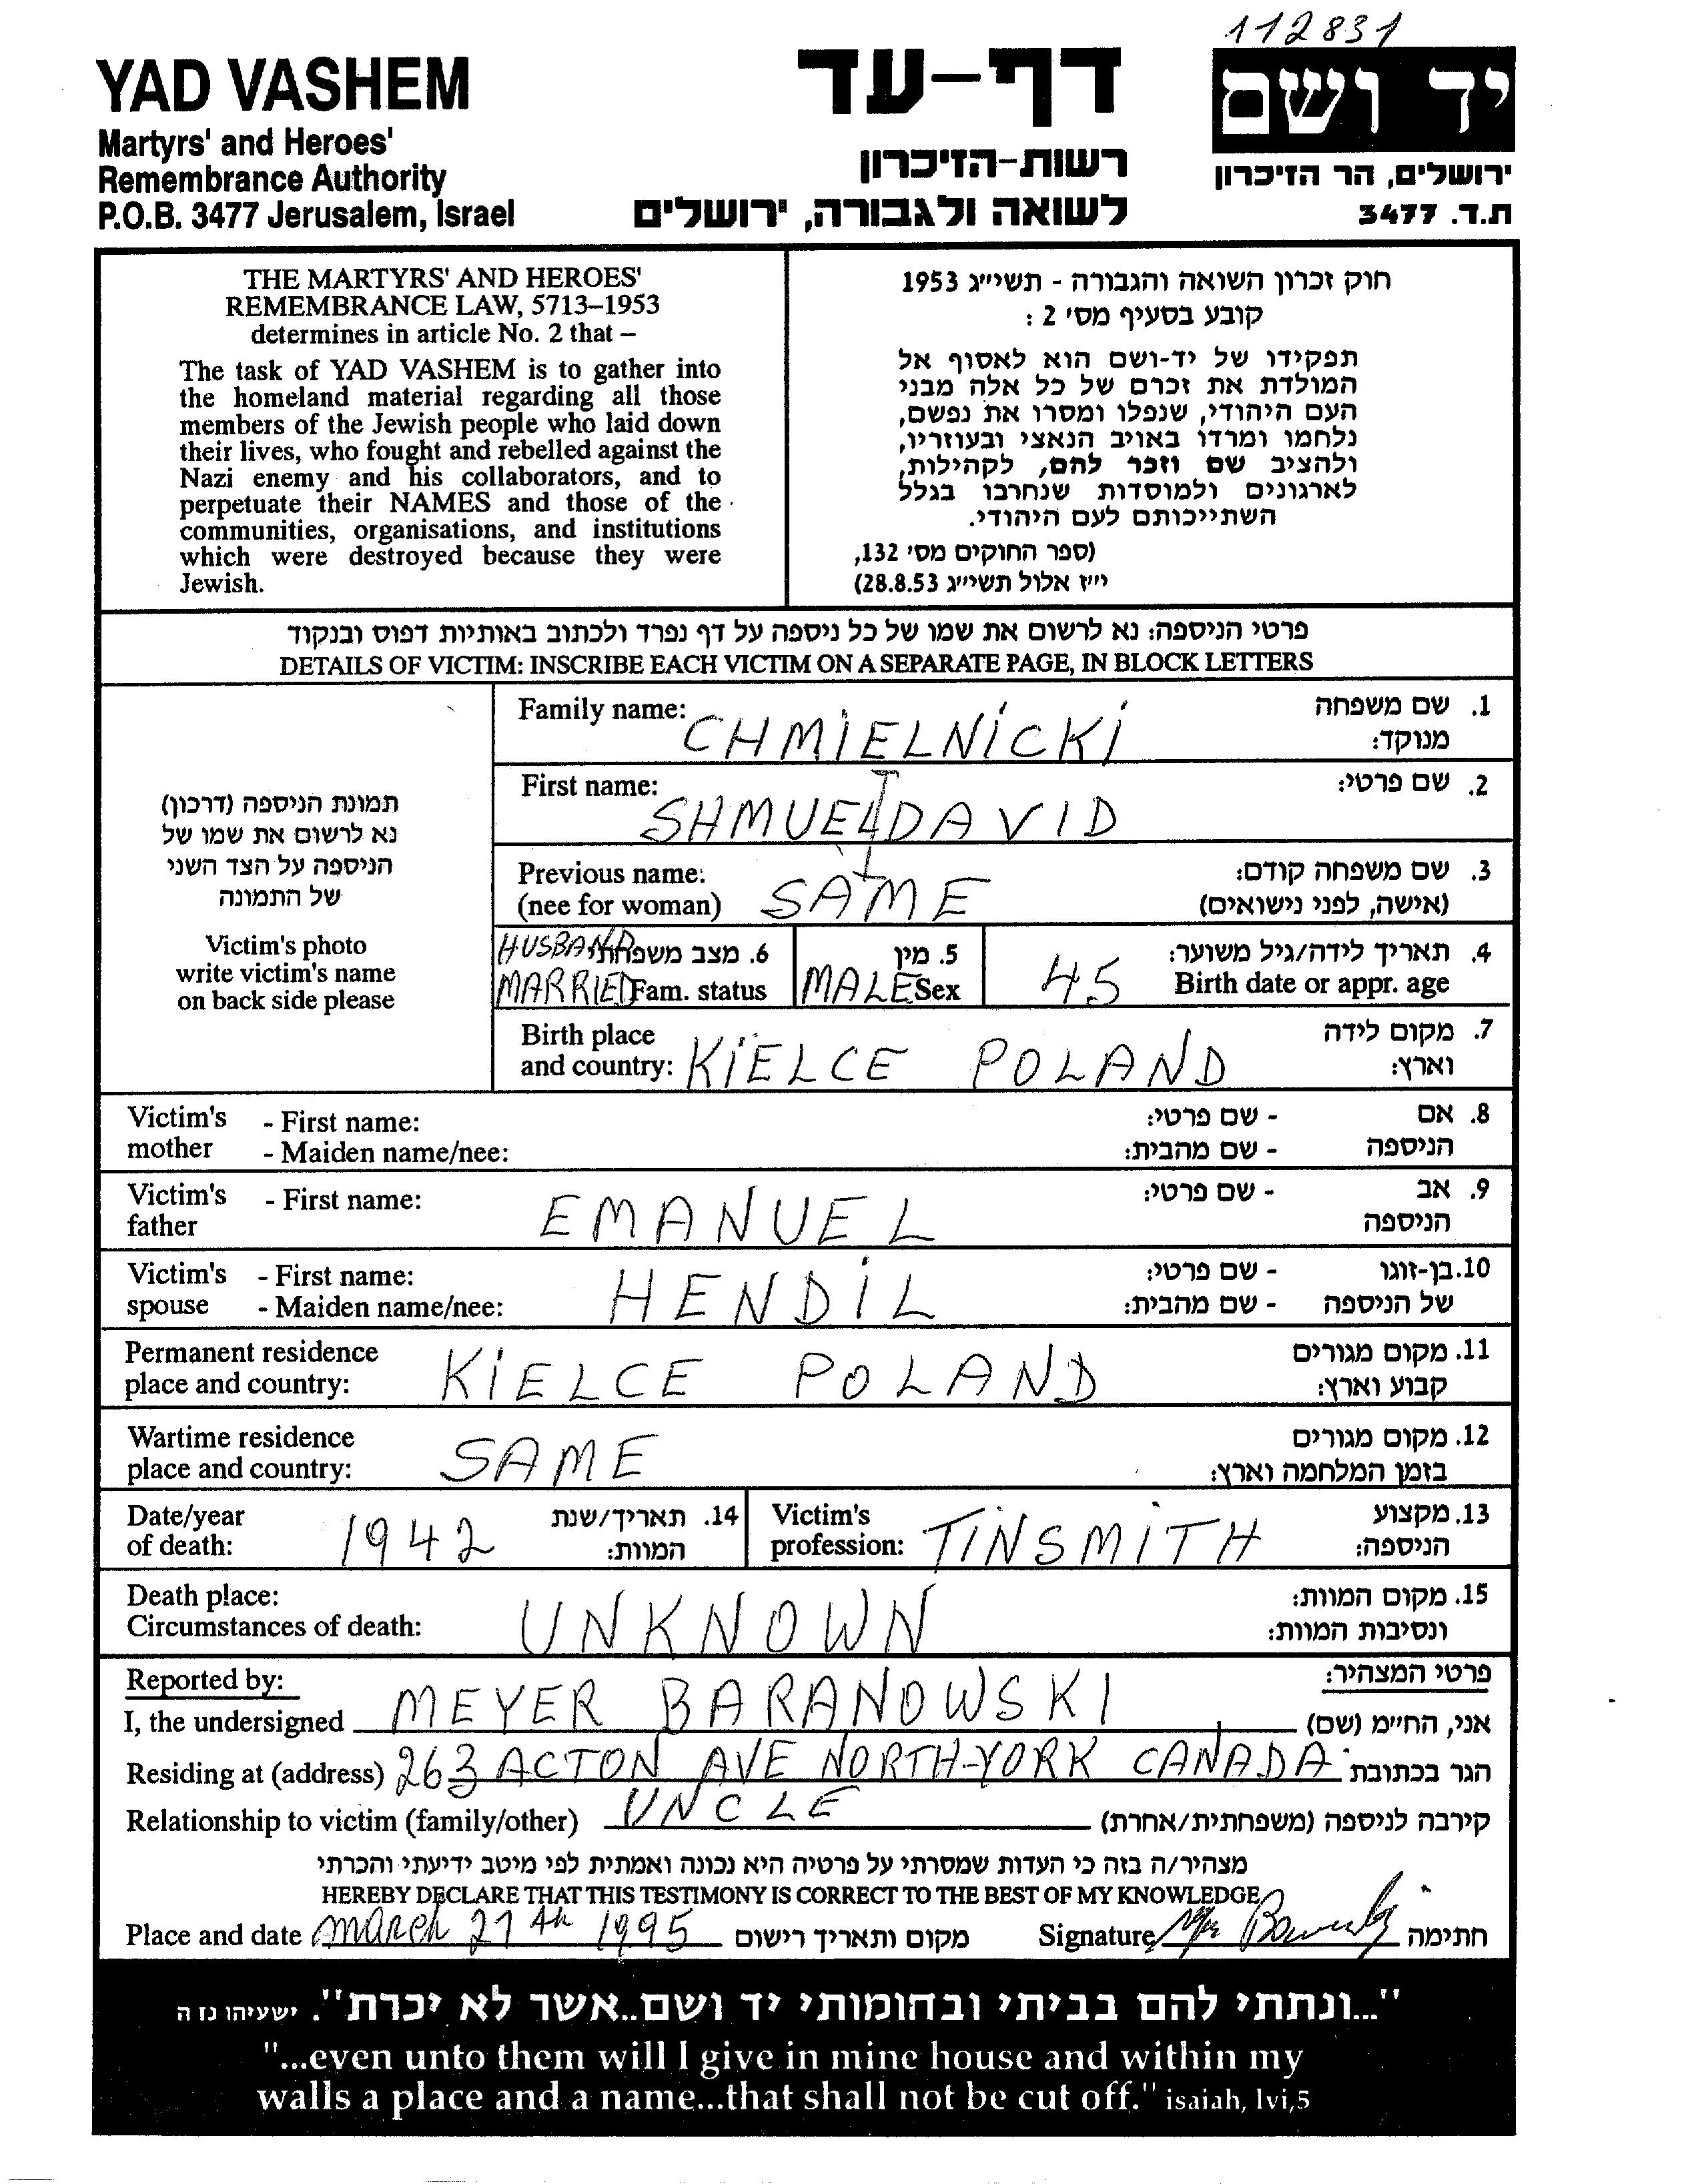 112831
YAD VASHEM
Martyrs' and Heroes'
Remembrance Authority
P.O.B. 3477 Jerusalem, Israel
דף-עד
רשות-הזיכרון
לשואה ולגבורה, ירושלים
יד ושם
ירושלים, הר הזיכרון
ת.ד. 3477
THE MARTYRS' AND HEROES'
REMEMBRANCE LAW, 5713–1953
determines in article No. 2 that –
The task of YAD VASHEM is to gather into
the homeland material regarding all those
members of the Jewish people who laid down
their lives, who fought and rebelled against the
Nazi enemy and his collaborators, and to
perpetuate their NAMES and those of the
communities, organisations, and institutions
which were destroyed because they were
Jewish.
חוק זכרון השואה והגבורה - תשי״ג 1953
קובע בסעיף מס׳ 2 :
תפקידו של יד-ושם הוא לאסוף אל
המולדת את זכרם של כל אלה מבני
העם היהודי, שנפלו ומסרו את נפשם,
נלחמו ומרדו באויב הנאצי ובעוזריו,
ולהציב שם וזכר להם, לקהילות,
לארגונים ולמוסדות שנחרבו בגלל
השתייכותם לעם היהודי.
(ספר החוקים מס׳ 132,
י״ז אלול תשי״ג 28.8.53)
פרטי הניספה: נא לרשום את שמו של כל ניספה על דף נפרד ולכתוב באותיות דפוס ובנקוד
DETAILS OF VICTIM: INSCRIBE EACH VICTIM ON A SEPARATE PAGE, IN BLOCK LETTERS
תמונת הניספה (דרכון)
נא לרשום את שמו של
הניספה על הצד השני
של התמונה
Victim's photo
write victim's name
on back side please
Family name: CHMIELNICKI 1. שם משפחה
מנוקד:
First name: SHMUEL DAVID 2. שם פרטי:
Previous name: 3. שם משפחה קודם:
(nee for woman) SAME (אישה, לפני נישואים)
HUSBAND 6. מצב משפחתי 5. מין 4. תאריך לידה/גיל משוער:
MARRIED Fam. status MALE Sex 45 Birth date or appr. age
Birth place 7. מקום לידה
and country: KIELCE POLAND וארץ:
Victim's - First name: - שם פרטי: 8. אם
mother - Maiden name/nee: - שם מהבית: הניספה
Victim's - First name: EMANUEL - שם פרטי: 9. אב
father הניספה
Victim's - First name: HENDIL - שם פרטי: 10. בן-זוגו
spouse - Maiden name/nee: - שם מהבית: של הניספה
Permanent residence 11. מקום מגורים
place and country: KIELCE POLAND קבוע וארץ:
Wartime residence 12. מקום מגורים
place and country: SAME בזמן המלחמה וארץ:
Date/year 14. תאריך/שנת Victim's 13. מקצוע
of death: 1942 המוות: profession: TINSMITH הניספה:
Death place: 15. מקום המוות:
Circumstances of death: UNKNOWN ונסיבות המוות:
Reported by: פרטי המצהיר:
I, the undersigned MEYER BARANOWSKI אני, החי״מ (שם)
Residing at (address) 263 ACTON AVE NORTH-YORK CANADA הגר בכתובת
Relationship to victim (family/other) UNCLE קירבה לניספה (משפחתית/אחרת)
מצהיר/ה בזה כי העדות שמסרתי על פרטיה היא נכונה ואמתית לפי מיטב ידיעתי והכרתי
HEREBY DECLARE THAT THIS TESTIMONY IS CORRECT TO THE BEST OF MY KNOWLEDGE
Place and date March 27th 1995 מקום ותאריך רישום Signature חתימה
"...ונתתי להם בביתי ובחומותי יד ושם..אשר לא יכרת". ישעיהו נז ה
"...even unto them will I give in mine house and within my
walls a place and a name...that shall not be cut off." isaiah, lvi,5